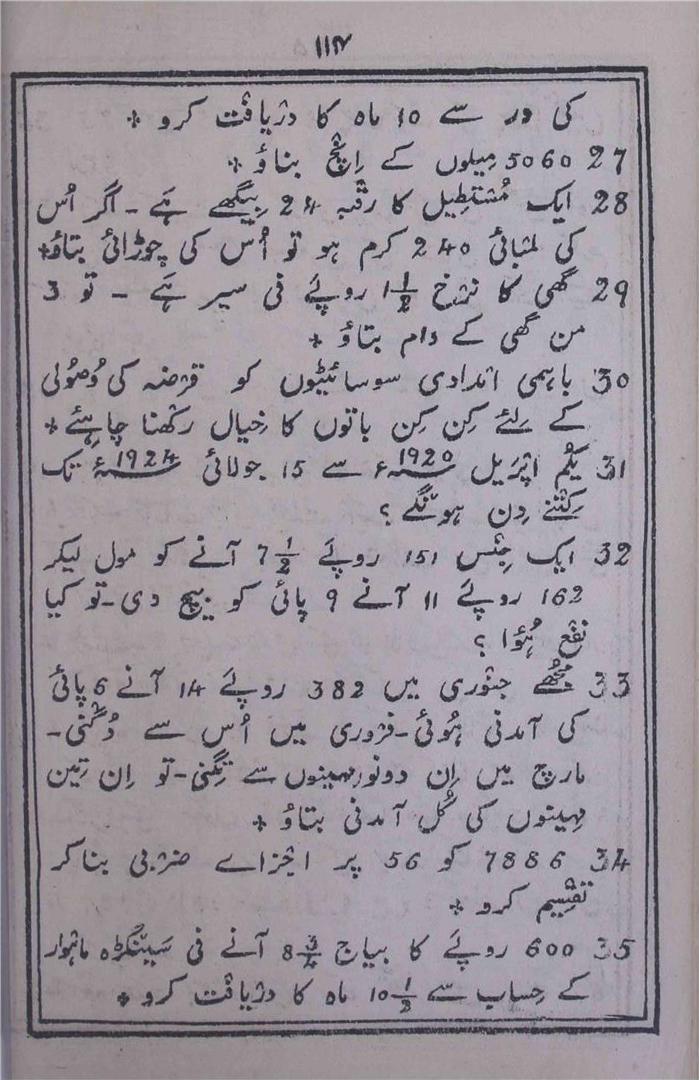 ۱۱۴
کی در سے 10 ماہ کا دریافت کرو +
27 5060 میلوں کے اِنچ بناؤ +
28 ایک مُستطیل کا رقبہ 24 بیگھے ہَے ـ اگر اُس
کی لمبائی 240 کرم ہو تو اُس کی چوڑائی بتاؤ +
29 گھی کا نرخ 1½ روپئے فی سیر ہَے ـ تو 3
من گھی کے دام بتاؤ +
30 باہمی امدادی سوسائیٹیوں کو قرضہ کی وُصولی
کے لئے کِن کِن باتوں کا خیال رکھنا چاہئے +
31 یکُم اپریل 1920ء سے 15 جولائی 1924ء تک
کِتنے دِن ہونگے ؟
32 ایک جِنس 151 روپئے 7½ آنے کو مول لیکر
162 روپئے 11 آنے 9 پائی کو بیچ دی ـ تو کیا
نفع ہُؤا ؟
33 مجھے جنوری میں 382 روپئے 14 آنے 6 پائی
کی آمدنی ہُوئی ـ فروری میں اُس سے دُگنی ـ
مارچ میں اِن دونو مہینوں سے تِگنی ـ تو اِن تین
مہینوں کی کُل آمدنی بتاؤ +
34 7886 کو 56 پر اجزاے ضربی بنا کر
تقسیم کرو +
35 600 روپئے کا بیاج 8¾ آنے فی سَینکڑہ ماہوار
کے حِساب سے 10½ ماہ کا دریافت کرو +